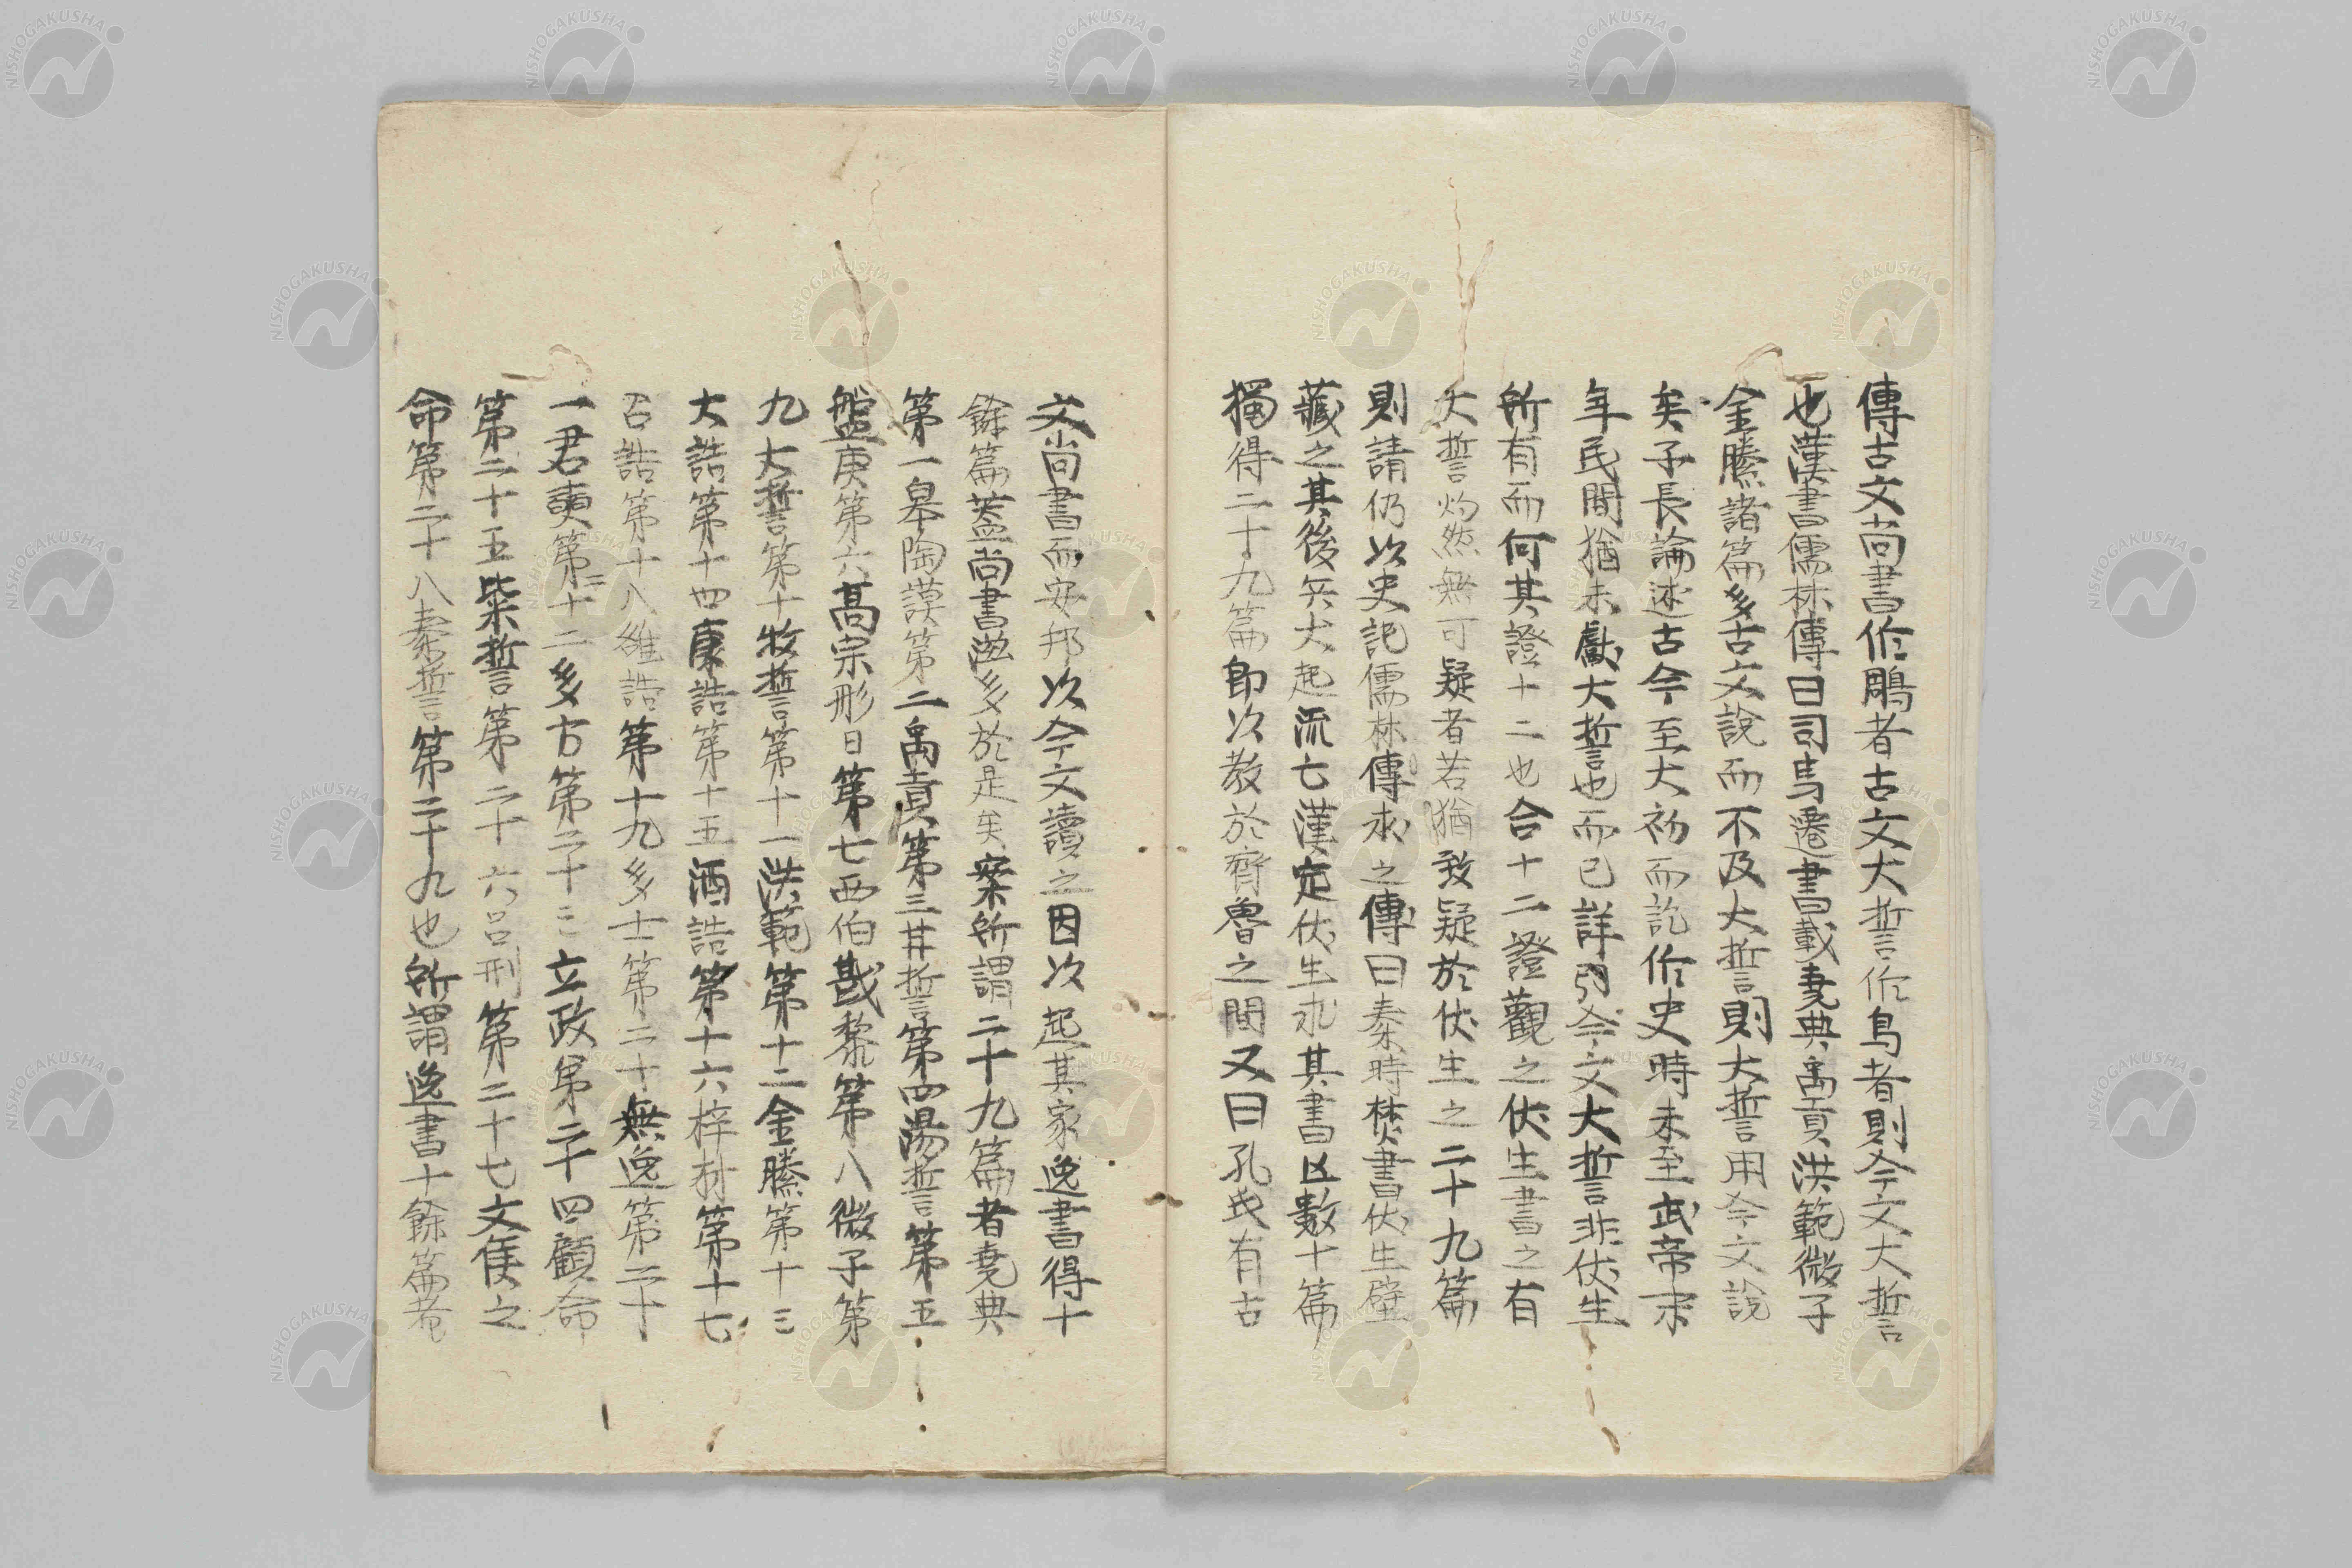 傳古文尚書作鵰者古文大誓作烏者則今文大誓
也漢書儒林傳曰司馬遷書載堯典禹貢洪範微子
金縢諸篇多古文說而不及大誓則大誓用今文說
矣子長論述古今至大初而訖作史時未至武帝末
年民間猶未獻大誓也而已詳引今文大誓非伏生
所有而何其證十二也合十二證觀之伏生書之有
大誓灼然無可疑者若猶致疑於伏生之二十九篇
則請仍以史記儒林傳求之傳曰秦時焚書伏生壁
藏之其後兵大起流亡漢定伏生求其書亡數十篇
獨得二十九篇即以教於齊魯之間又曰孔氏有古
文尚書而安邦以今文讀之因以起其家逸書得十
餘篇蓋尚書滋多於是矣案所謂二十九篇者堯典
第一皋陶謨第二禹貢第三甘誓第四湯誓第五
盤庚第六高宗肜日第七西伯戡黎第八微子第
九大誓第十牧誓第十一洪範第十二金縢第十三
大誥第十四康誥第十五酒誥第十六梓材第十七
召誥第十八雒誥第十九多士第二十無逸第二十
一君奭第二十二多方第二十三立政第二十四顧命
第二十五粊誓第二十六呂刑第二十七文侯之
命第二十八秦誓第二十九也所謂逸書十餘篇者
NISHOGAKUSHA